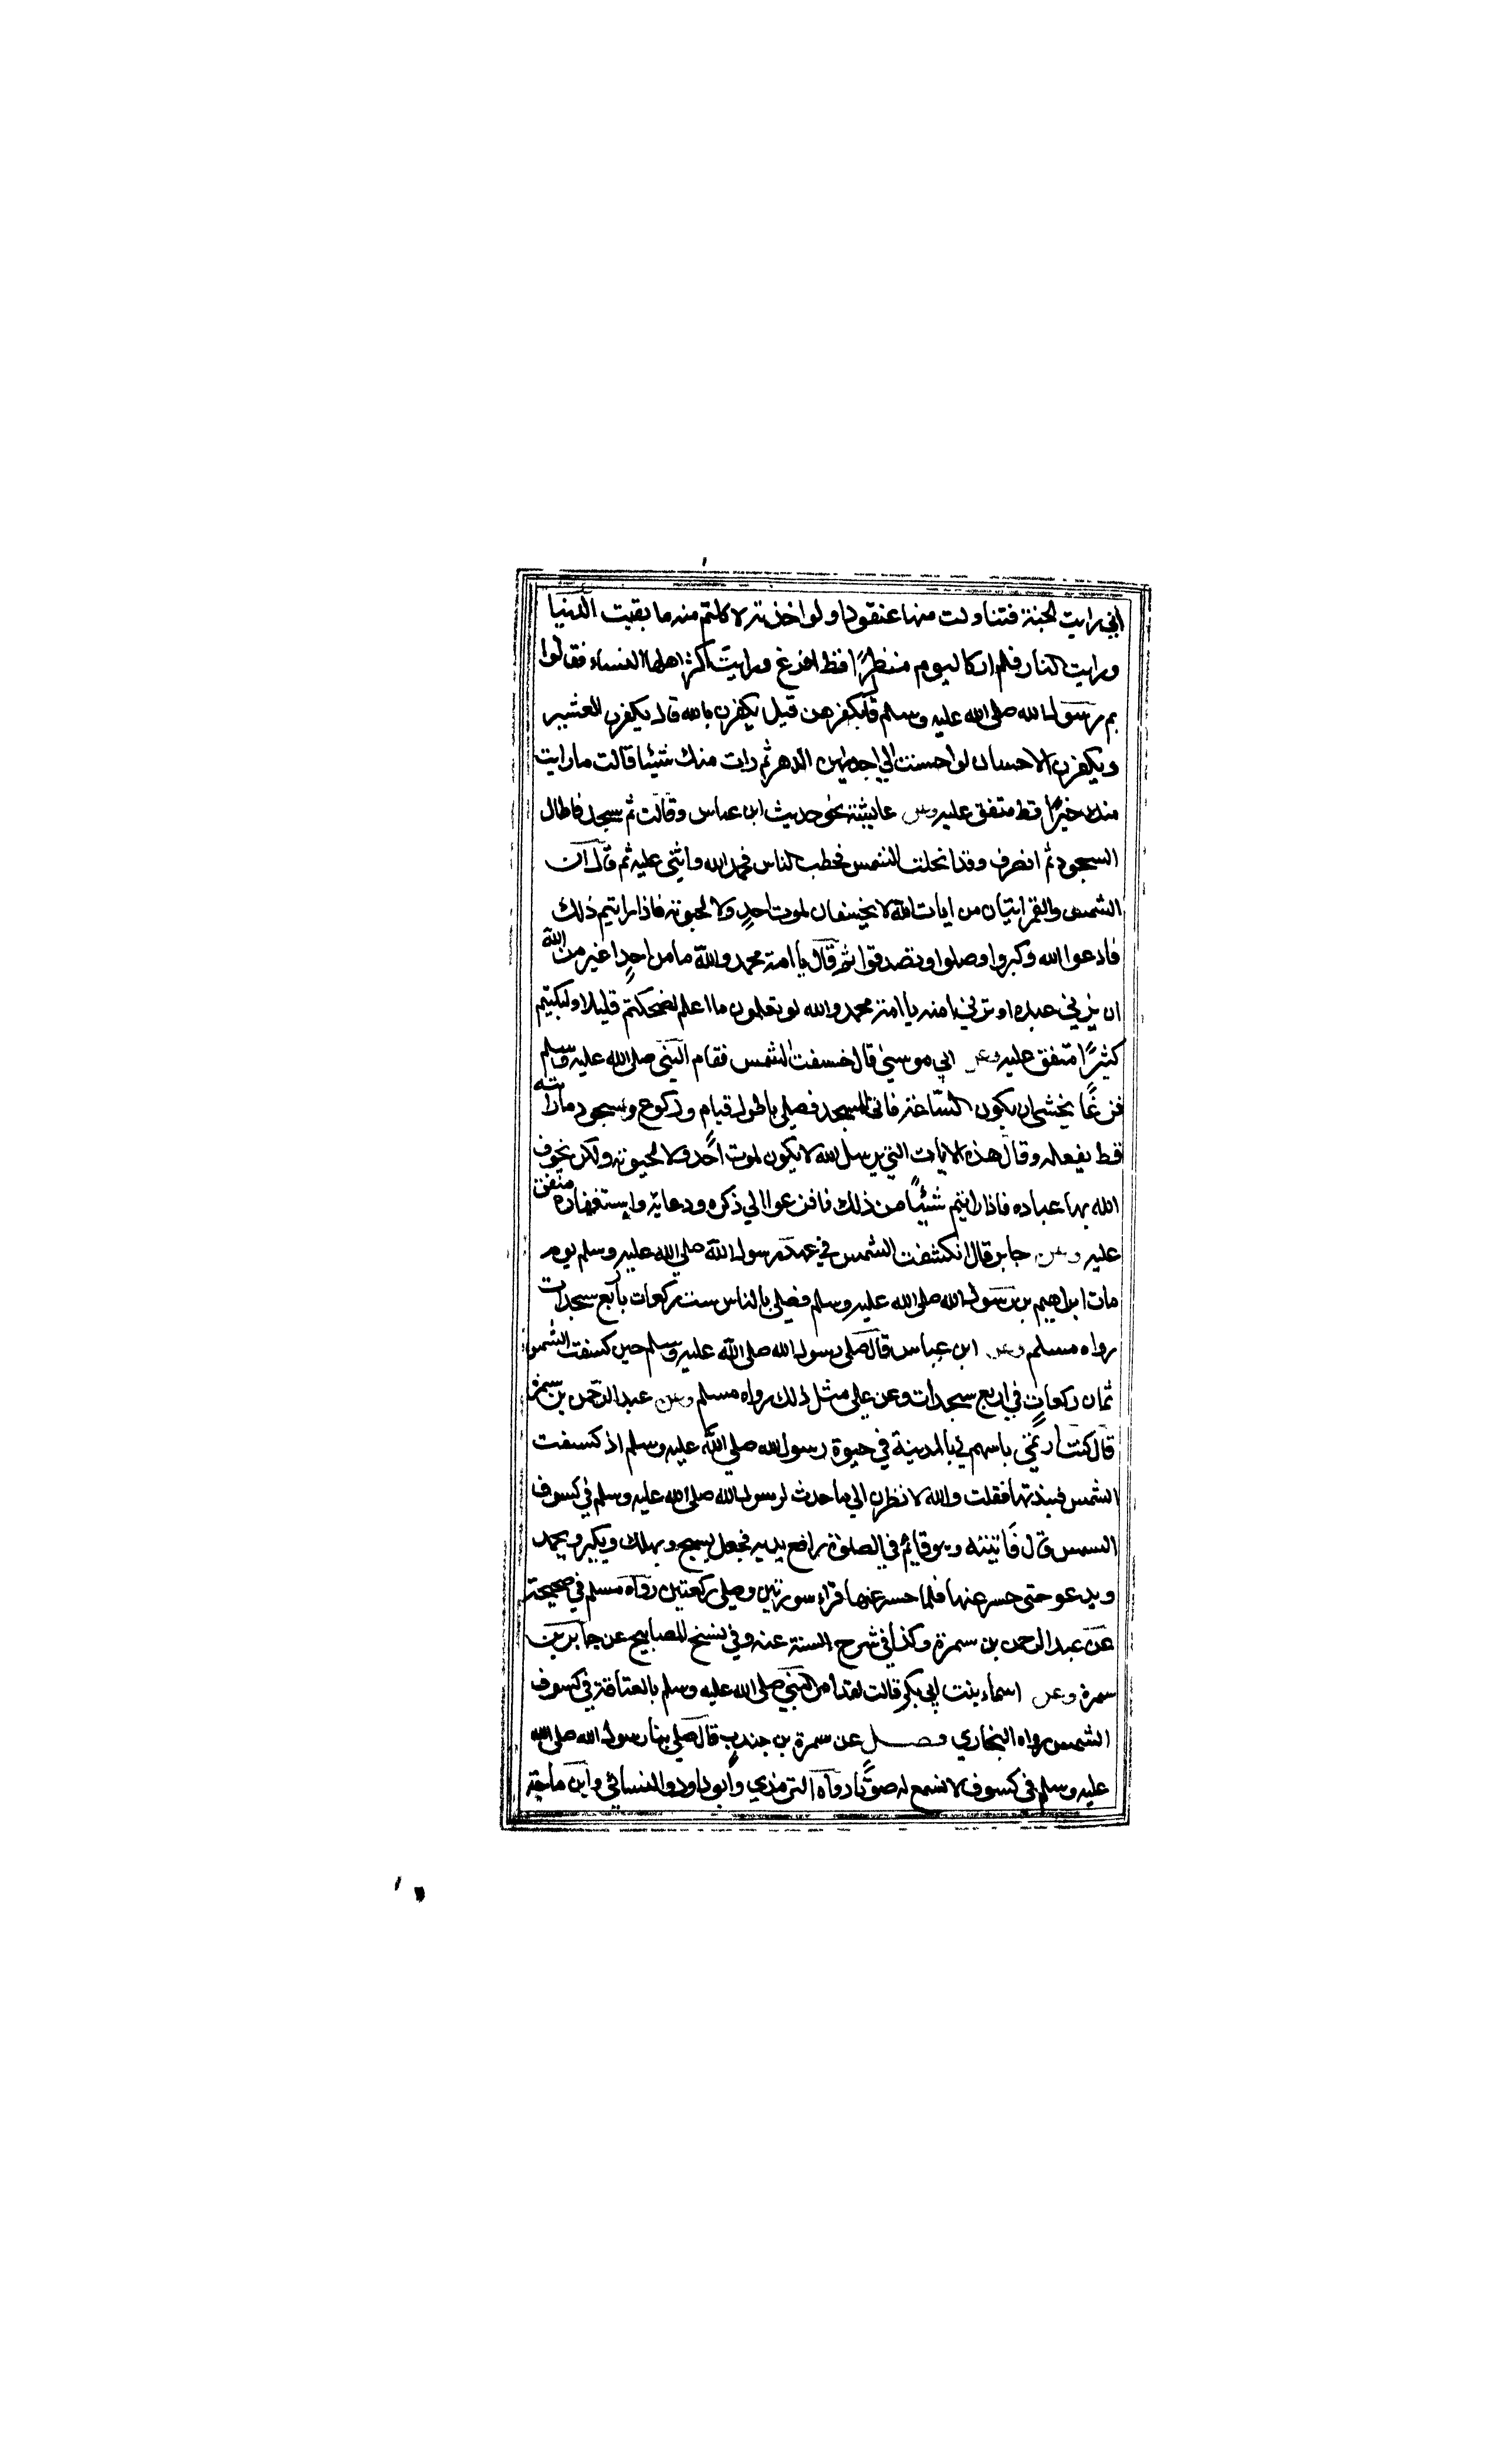 اني رايت الجنة فتناولت منها عنقودا ولو اخذته لاكلتم منه ما بقيت الدنيا
ورايت النار فلم ار كاليوم منظرًا قط افزع ورايت اكثر اهلها النساء فقالوا
بم يرسول الله صلى الله عليه وسلم قال بكفرهن قيل يكفرن بالله قال يكفرن العشير
ويكفرن الاحسان لو احسنت الي احديهن الدهر ثم رات منك شيئا قالت ما رايت
منك خيرًا قط متفق عليه وعن عايشة نحو حديث ابن عباس وقالت ثم سجد فاطال
السجود ثم انصرف وقد انجلت الشمس فخطب الناس فحمد الله واثنى عليه ثم قال ان
الشمس والقمر ايتان من ايات الله لا يخسفان لموت احدٍ ولا لحيوته فاذا رايتم ذلك
فادعوا الله وكبروا وصلوا وتصدقوا ثم قال يا امة محمد والله ما من احدٍ اغير من الله
ان يزني عبده او تزني امته يا امة محمد والله لو تعلمون ما اعلم لضحكتم قليلا ولبكيتم
كثيرًا متفق عليه وعن ابي موسي قال خسفت الشمس فقام النبي صلى الله عليه وسلم
فزعًا يخشي ان يكون الساعة فاتى المسجد فصلي باطول قيام وركوع وسجود ما رايته
قط يفعله وقال هذه الايات التي يرسل الله لا يكون لموت احد ولا لحيوته ولكن يخوف
الله بها عباده فاذا رايتم شيئًا من ذلك فافزعوا الي ذكره ودعايه واستغفاره متفق
عليه وعن جابر قال انكشفت الشمس في عهد رسول الله صلي الله عليه وسلم يوم
مات ابراهيم بن رسول الله صلى الله عليه وسلم فصلى بالناس ست ركعات باربع سجدات
رواه مسلم وعن ابن عباس قال صلى رسول الله صلى الله عليه وسلم حين كسفت الشمس
ثمان ركعات في اربع سجدات وعن علي مثل ذلك رواه مسلم وعن عبد الرحمن بن سمرة
قال كنت ارتمي باسهم لي بالمدينة في حيوة رسول الله صلي الله عليه وسلم اذ كسفت
الشمس فنبذتها فقلت والله لانظرن الي ما حدث لرسول الله صلى الله عليه وسلم في كسوف
الشمس قال فاتيته وهو قائم في الصلوة رافع يديه فجعل يسبح ويهلل ويكبر ويحمد
ويدعو حتى حسر عنها فلما حسر عنها قراء سورتين وصلي ركعتين رواه مسلم في صحيحه
عن عبد الرحمن بن سمرة وكذا في شرح السنة عنه وفي نسخ المصابيح عن جابر بن
سمرة وعن اسماء بنت ابي بكر قالت لقد امر النبي صلى الله عليه وسلم بالعتاقة في كسوف
الشمس رواه البخاري فصل عن سمرة بن جندب قال صلي بنا رسول الله صلى الله
عليه وسلم في كسوف لا نسمع له صوتًا رواه الترمذي وابو داود والنسائي وابن ماجة